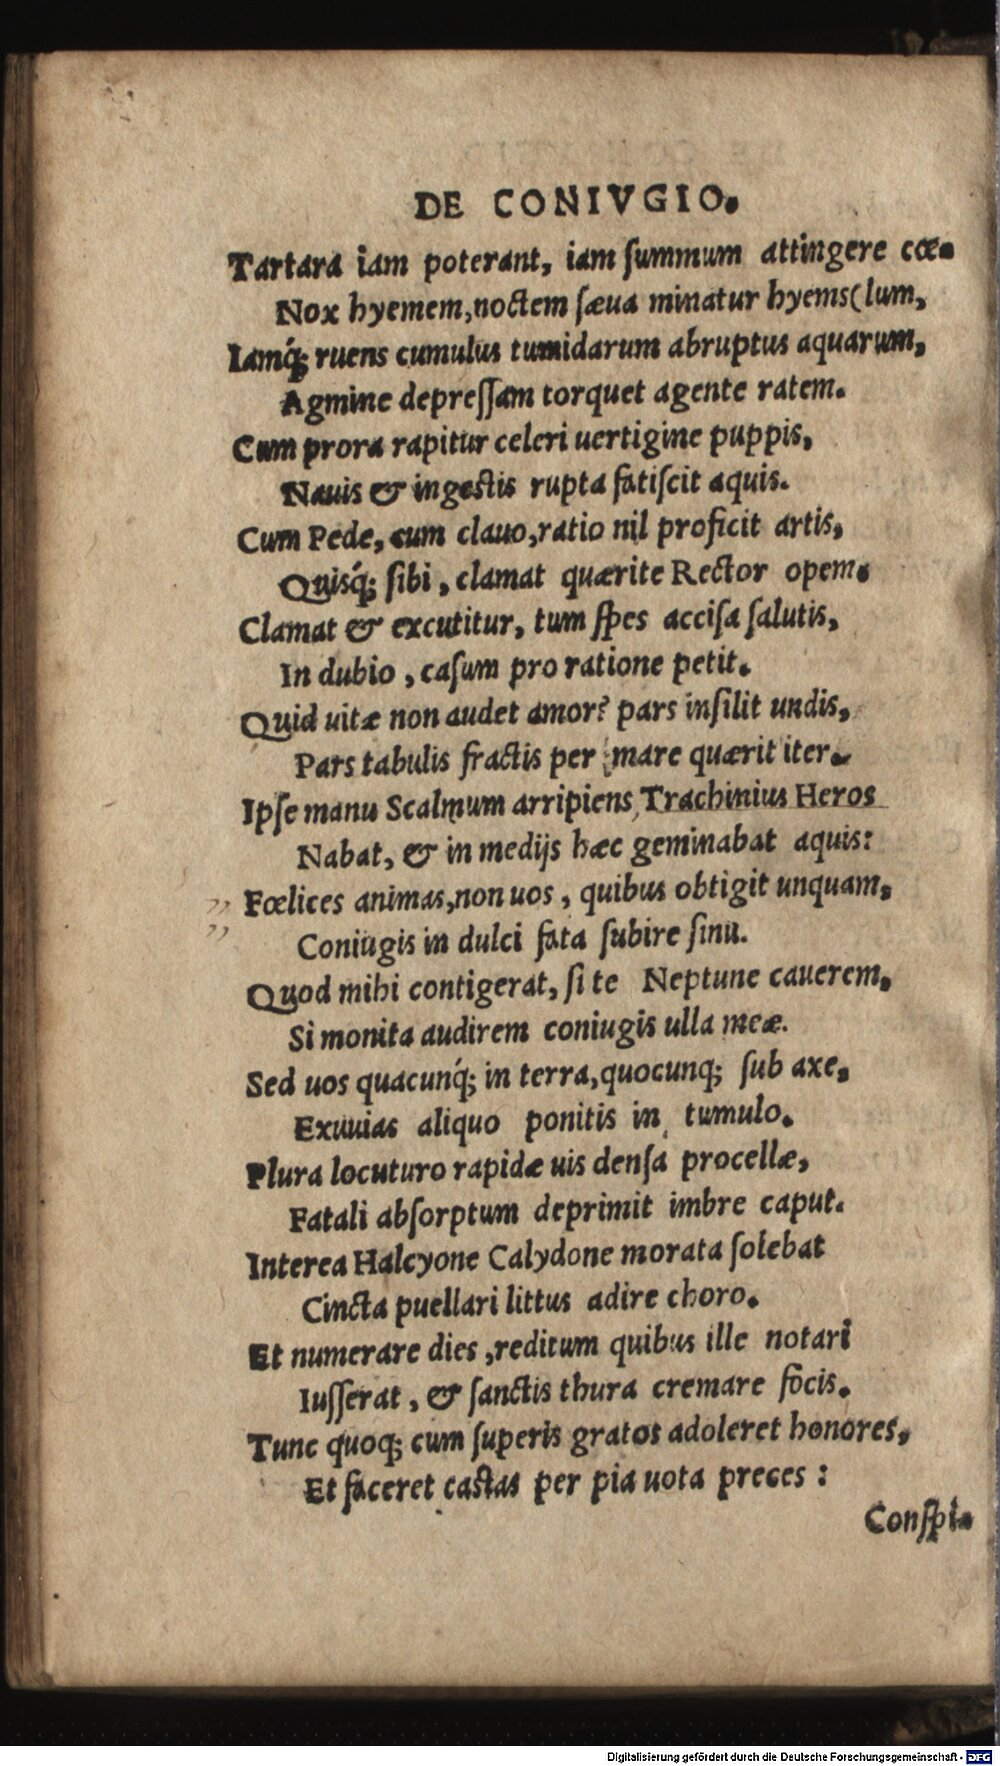 DE CONIVGIO.
Tartara iam poterant, iam ſummum attingere cœ-
Nox hyemem, noctem ſæua minatur hyems (lum,
Iamq́; ruens cumulus tumidarum abruptus aquarum,
Agmine depreſſam torquet agente ratem.
Cum prora rapitur celeri uertigine puppis,
Nauis & ingestis rupta fatiſcit aquis.
Cum Pede, cum clauo, ratio nil proficit artis,
Quisq́; ſibi, clamat quærite Rector opem.
Clamat & excutitur, tum ſpes acciſa ſalutis,
In dubio, caſum pro ratione petit.
Quid uitæ non audet amor? pars inſilit undis,
Pars tabulis fractis per mare quærit iter.
Ipſe manu Scalmum arripiens, Trachinius Heros
Nabat, & in medijs hæc geminabat aquis:
,, Fœlices animas, non uos, quibus obtigit unquam,
,, Coniugis in dulci fata ſubire ſinu.
Quod mihi contigerat, ſi te Neptune cauerem,
Si monita audirem coniugis ulla meæ.
Sed uos quacunq́; in terra, quocunq; ſub axe,
Exuuias aliquo ponitis in tumulo.
Plura locuturo rapidæ uis denſa procellæ,
Fatali abſorptum deprimit imbre caput.
Interea Halcyone Calydone morata ſolebat
Cincta puellari littus adire choro.
Et numerare dies, reditum quibus ille notari
Iuſſerat, & ſanctis thura cremare focis.
Tunc quoq; cum ſuperis gratos adoleret honores,
Et faceret castas per pia uota preces:
Conſpi-
Digitalisierung gefördert durch die Deutsche Forschungsgemeinschaft - DFG